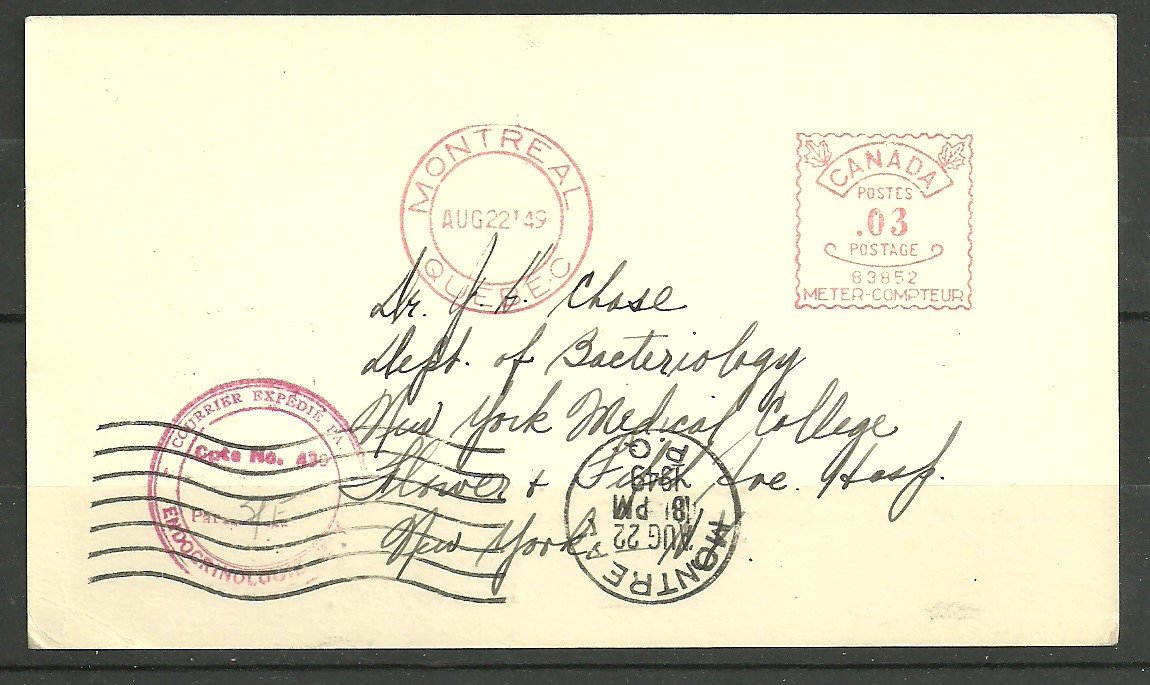 MONTREAL
AUG 22 '49
QUEBEC
CANADA
POSTES
.03
POSTAGE
83852
METER-COMPTEUR
Dr. J. H. Chase
Dept. of Bacteriology
New York Medical College
Flower + Fifth Ave. Hosp.
New York
COURRIER EXPÉDIÉ PA
Cpte No. 430
Par
ENDOCRINOLOGIE
MONTRE
AUG 22
PM
1949
P.Q